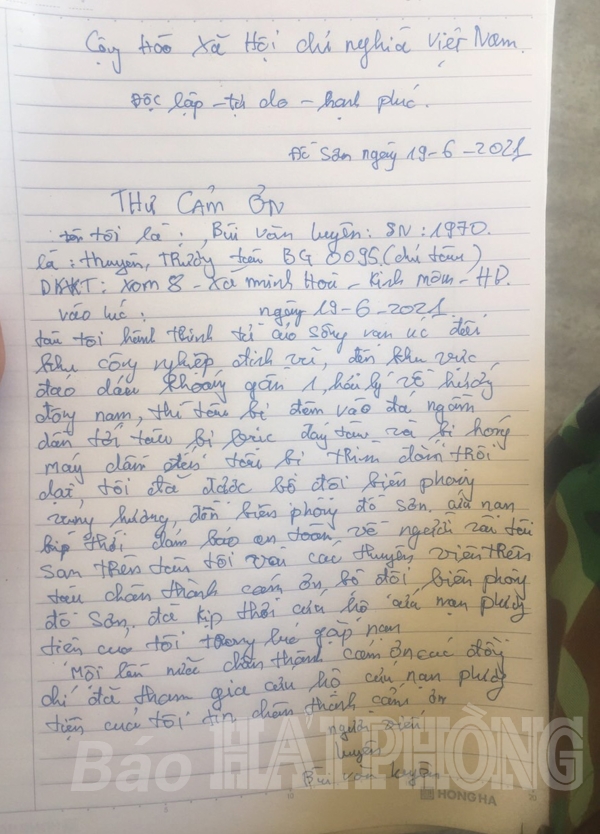 Cộng Hòa Xã Hội chủ nghĩa Việt Nam.
Độc lập - tự do - hạnh phúc.
Đồ Sơn ngày 19-6-2021
THƯ CẢM ƠN
tôi là: Bùi văn luyện: SN: 1970.
là: thuyền trưởng tàu BG 0095 (chủ tàu)
DKKT: xóm 8 - xã minh Hoà - Kinh môn - HD.
vào lúc: ngày 19-6-2021.
tàu tôi hành trình từ cửa sông van uc đến
khu công nghiệp đình vũ, đến khu vực
đảo dáu khoảng gần 1, hải lý về hướng
đông nam, thì tàu bị đâm vào đá ngầm
dẫn tới tàu bị bục đáy tàu và bị hỏng
máy dẫn đến tàu bị chìm đắm trôi
dạt, tôi đã được bộ đội biên phòng
đồn biên phòng đồ sơn, cứu nạn
kịp thời đảm bảo an toàn về người và tài
sản trên tàu tôi và các thuyền viên trên
tàu chân thành cảm ơn, bộ đội biên phòng
đồ sơn, đã kịp thời cứu hộ cứu nạn phương
tiện của tôi trong lúc gặp nạn
Một lần nữa chân thành cảm ơn các đồng
chí đã tham gia cứu hộ cứu nạn phương
tiện của tôi chân thành cảm ơn
người viết
luyện
Bùi văn luyện
Báo HẢI PHÒNG
HONG HA